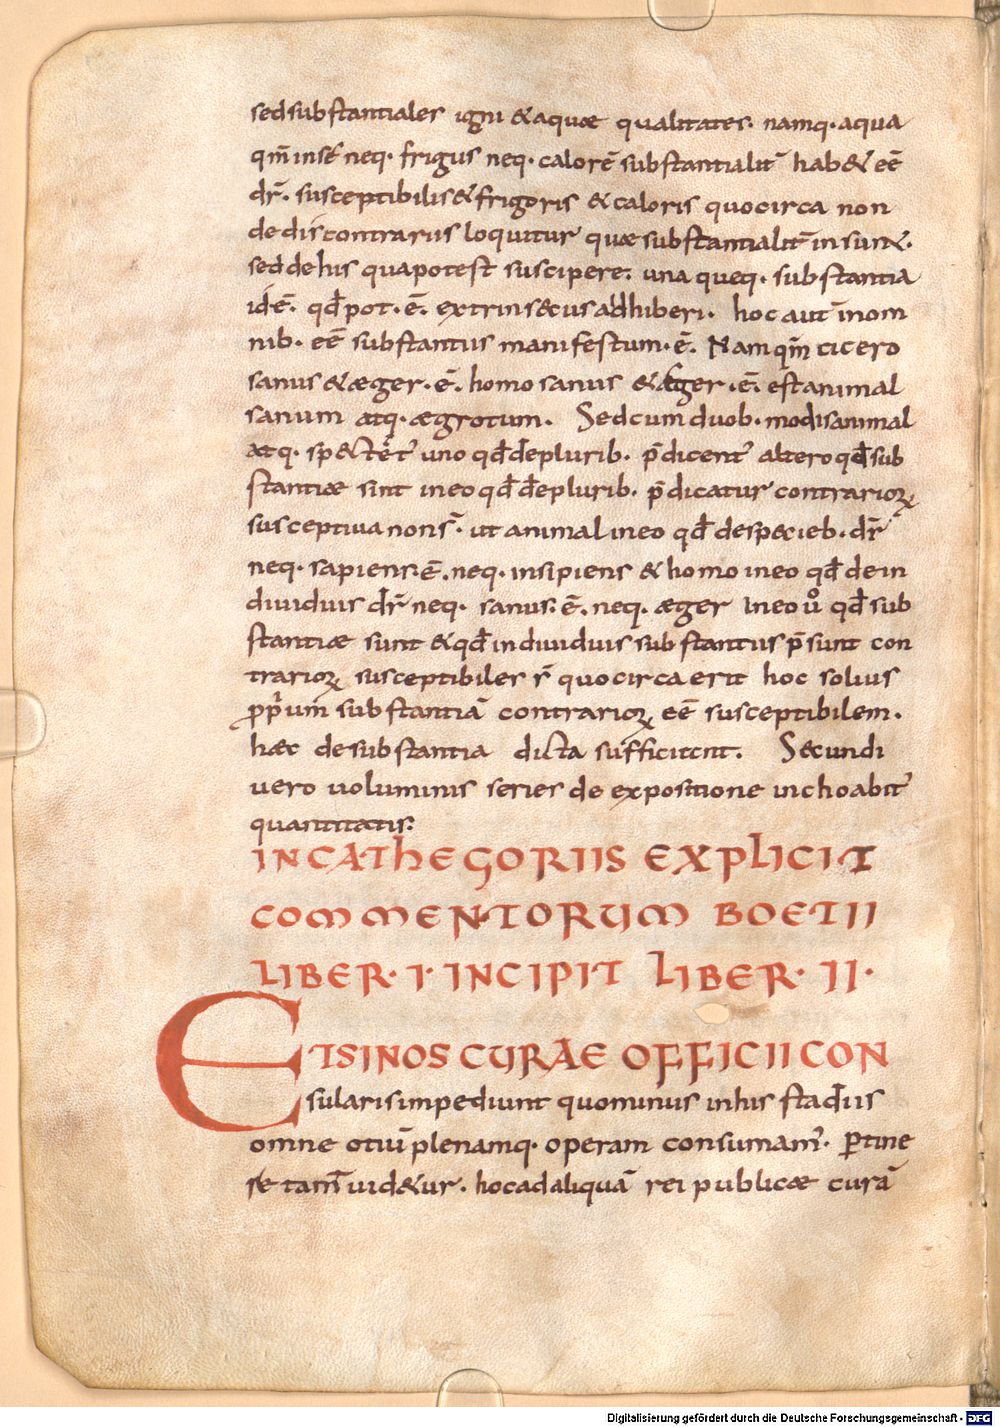 sedsubstantiales igni &aquae qualitates. namq. aqua
qm̄ inse neq. frigus neq. calorē substantialit̄ hab& eē
dr̄. susceptibilis&frigoris &caloris quocirca non
dediscontrariis loquitur quae substantialit̄ insunt.
seddehis quapotest suscipere. una queq. substantia
idē. qd̄ pot. ē. extrinsecusadhiberi. hoc aut̄ inom
nib. eē substantiis manifestum. ē. Namqm̄ cicero
sanus &aeger. ē. homo sanus &aeger. ē. estanimal
sanum atq. aegrotum. Sedcum duob. modisanimal
atq. spectet̄ uno qd̄ deplurib. p̄dicent̄ altero qd̄ sub
stantiae sint ineo qd̄ deplurib. p̄dicatur contrarioꝝ
susceptiua nons̄. ut animal ineo qd̄ despecieb. dr̄
neq. sapiens. ē. neq. insipiens &homo ineo qd̄ dein
diuiduis dr̄ neq. sanus. ē. neq. aeger Ineo ů qd̄ sub
stantiae sunt &qd̄ indiuiduis substantiis p̄sunt con
trarioꝝ susceptibiles r̄ quocirca erit hoc solius
ꝓprium substantiā contrarioꝝ eē susceptibilem.
haec desubstantia dicta sufficient. Secundi
uero uoluminis series de expositione inchoabit̄
quantitatis.
INCATHEGORIIS EXPLICIT
COMMENTORUM BOETII
LIBER. I. INCIPIT LIBER. II.
ETSINOS CURAE OFFICII CON
sularisimpediunt quominus inhis stadiis
omne otiū plenamq. operam consumam̄. ꝑtine
re tam̄ uid&ur. hocadaliquā rei publicae curā
Digitalisierung gefördert durch die Deutsche Forschungsgemeinschaft - DFG